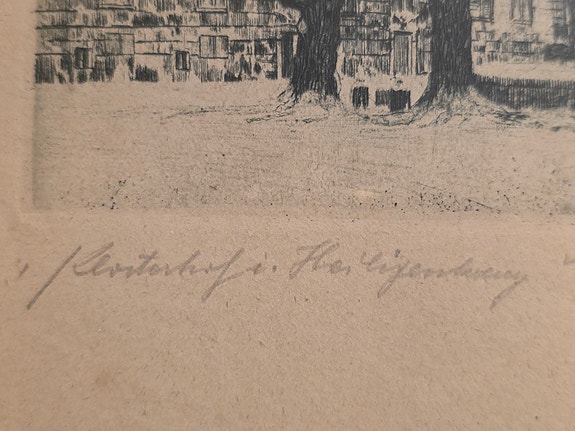 "Klosterhof i. Heiligenkreuz"